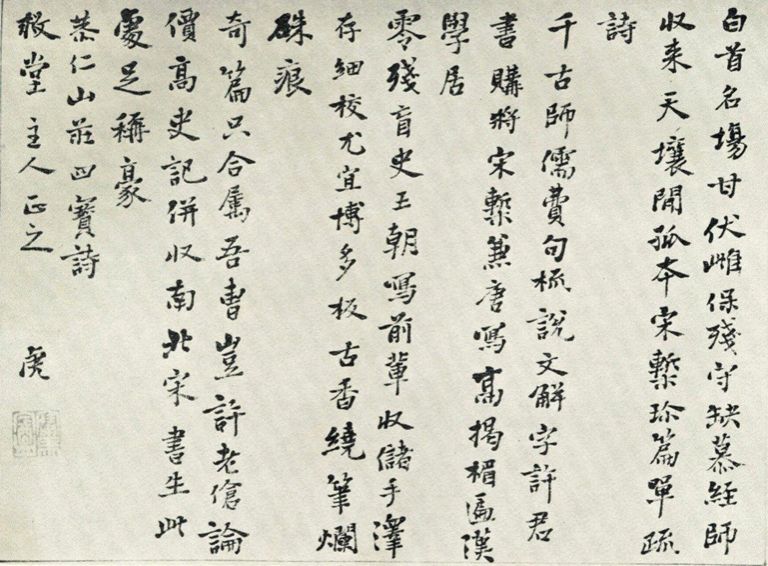 白首名場甘伏雌保殘守缺慕經師
收来天壤間孤本宋槧珍篇單疏
詩
千古師儒費句梳說文解字許君
書購將宋槧兼唐寫高揭楣匾漢
學居
零殘盲史王朝寫前輩收儲手澤
存細校尤宜博多板古香繞筆爛
硃痕
奇篇只合属吾曹豈許老傖論
價高史記併收南北宋書生此
處足稱豪
恭仁山莊四寶詩
堂主人正之 虎